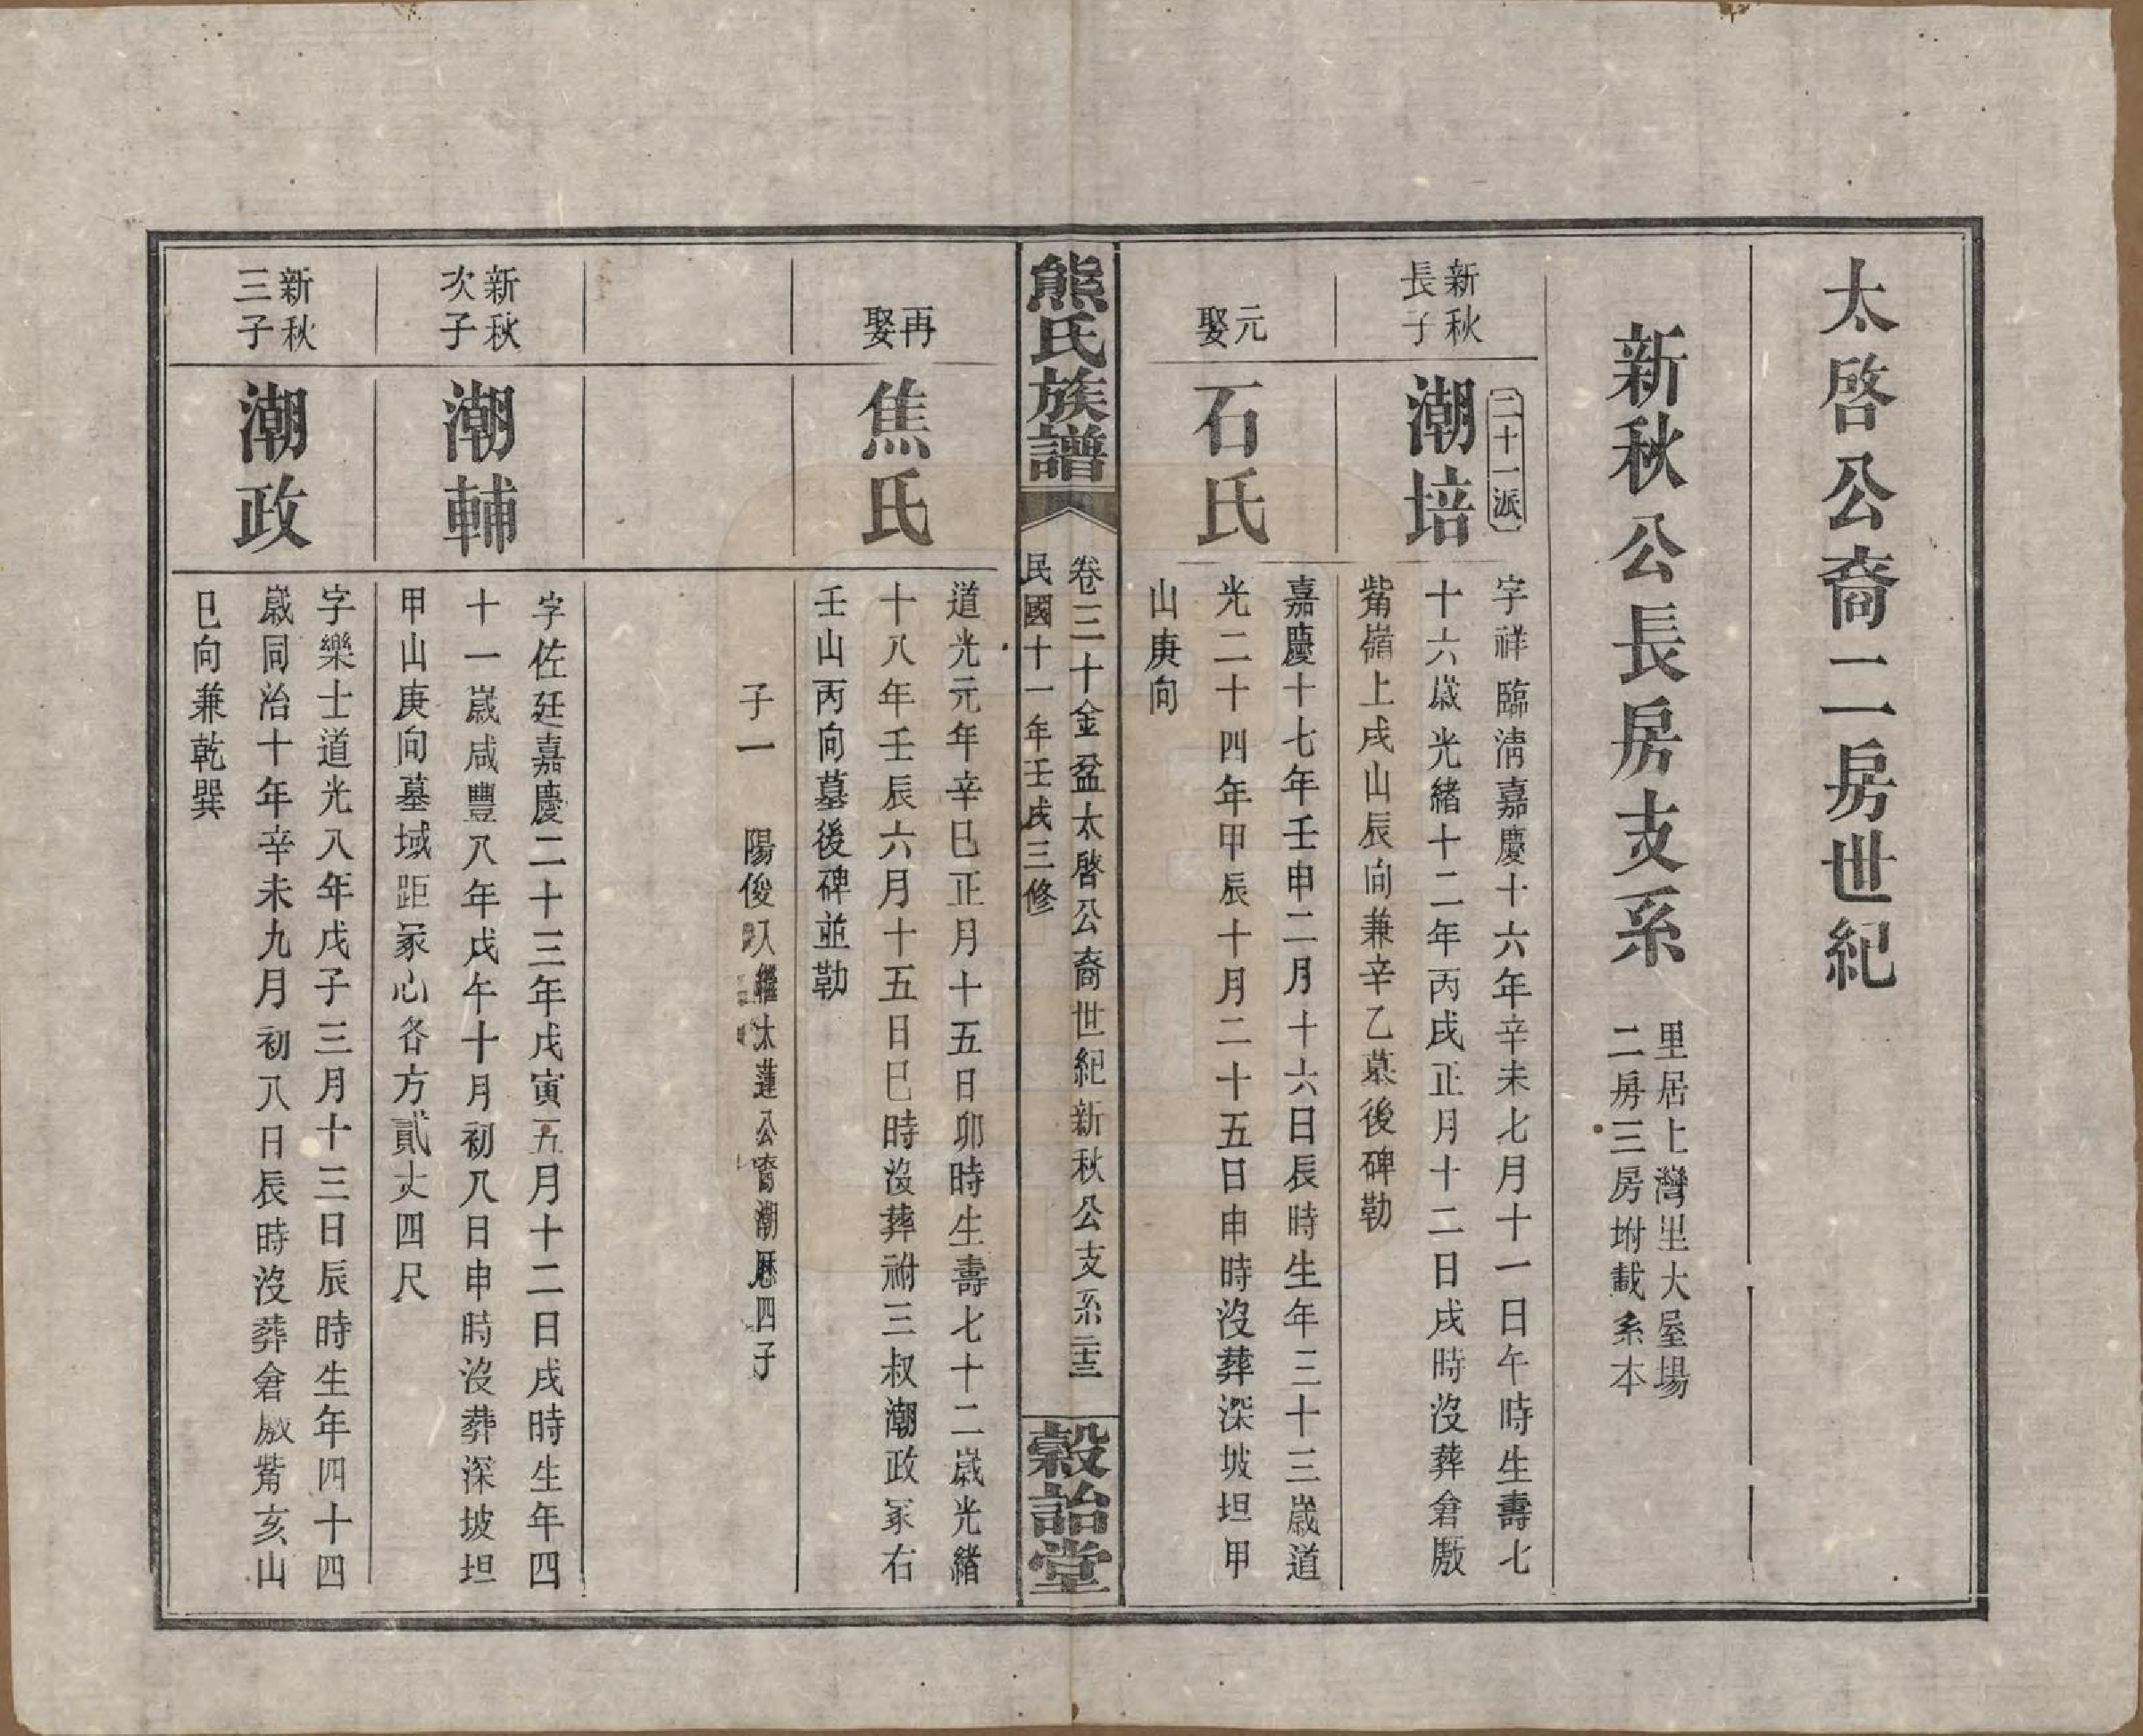 太啓公裔二房世紀
新秋公長房支系
里居上灣里大屋場
二房三房坿載系本
新秋
長子
二十一派
潮培
字祥臨淸嘉慶十六年辛未七月十一日午時生壽七
十六歲光緒十二年丙戌正月十二日戌時沒葬倉厫
觜嶺上戌山辰向兼辛乙墓後碑勒
元
娶
石氏
嘉慶十七年壬申二月十六日辰時生年三十三歲道
光二十四年甲辰十月二十五日申時沒葬深坡坦甲
山庚向
熊氏族譜
卷三十金盆太啓公裔世紀新秋公支系二十三
民國十一年壬戌三修
穀詒堂
再
娶
焦氏
道光元年辛巳正月十五日卯時生壽七十二歲光緒
十八年壬辰六月十五日巳時沒葬祔三叔潮政冢右
壬山丙向墓後碑並勒
子一 陽俊
入繼太蓮公裔潮曆四子
新秋
次子
潮輔
字佐廷嘉慶二十三年戊寅五月十二日戌時生年四
十一歲咸豐八年戊午十月初八日申時沒葬深坡坦
甲山庚向墓域距冢心各方貳丈四尺
新秋
三子
潮政
字樂士道光八年戊子三月十三日辰時生年四十四
歲同治十年辛未九月初八日辰時沒葬倉厫觜亥山
巳向兼乾巽